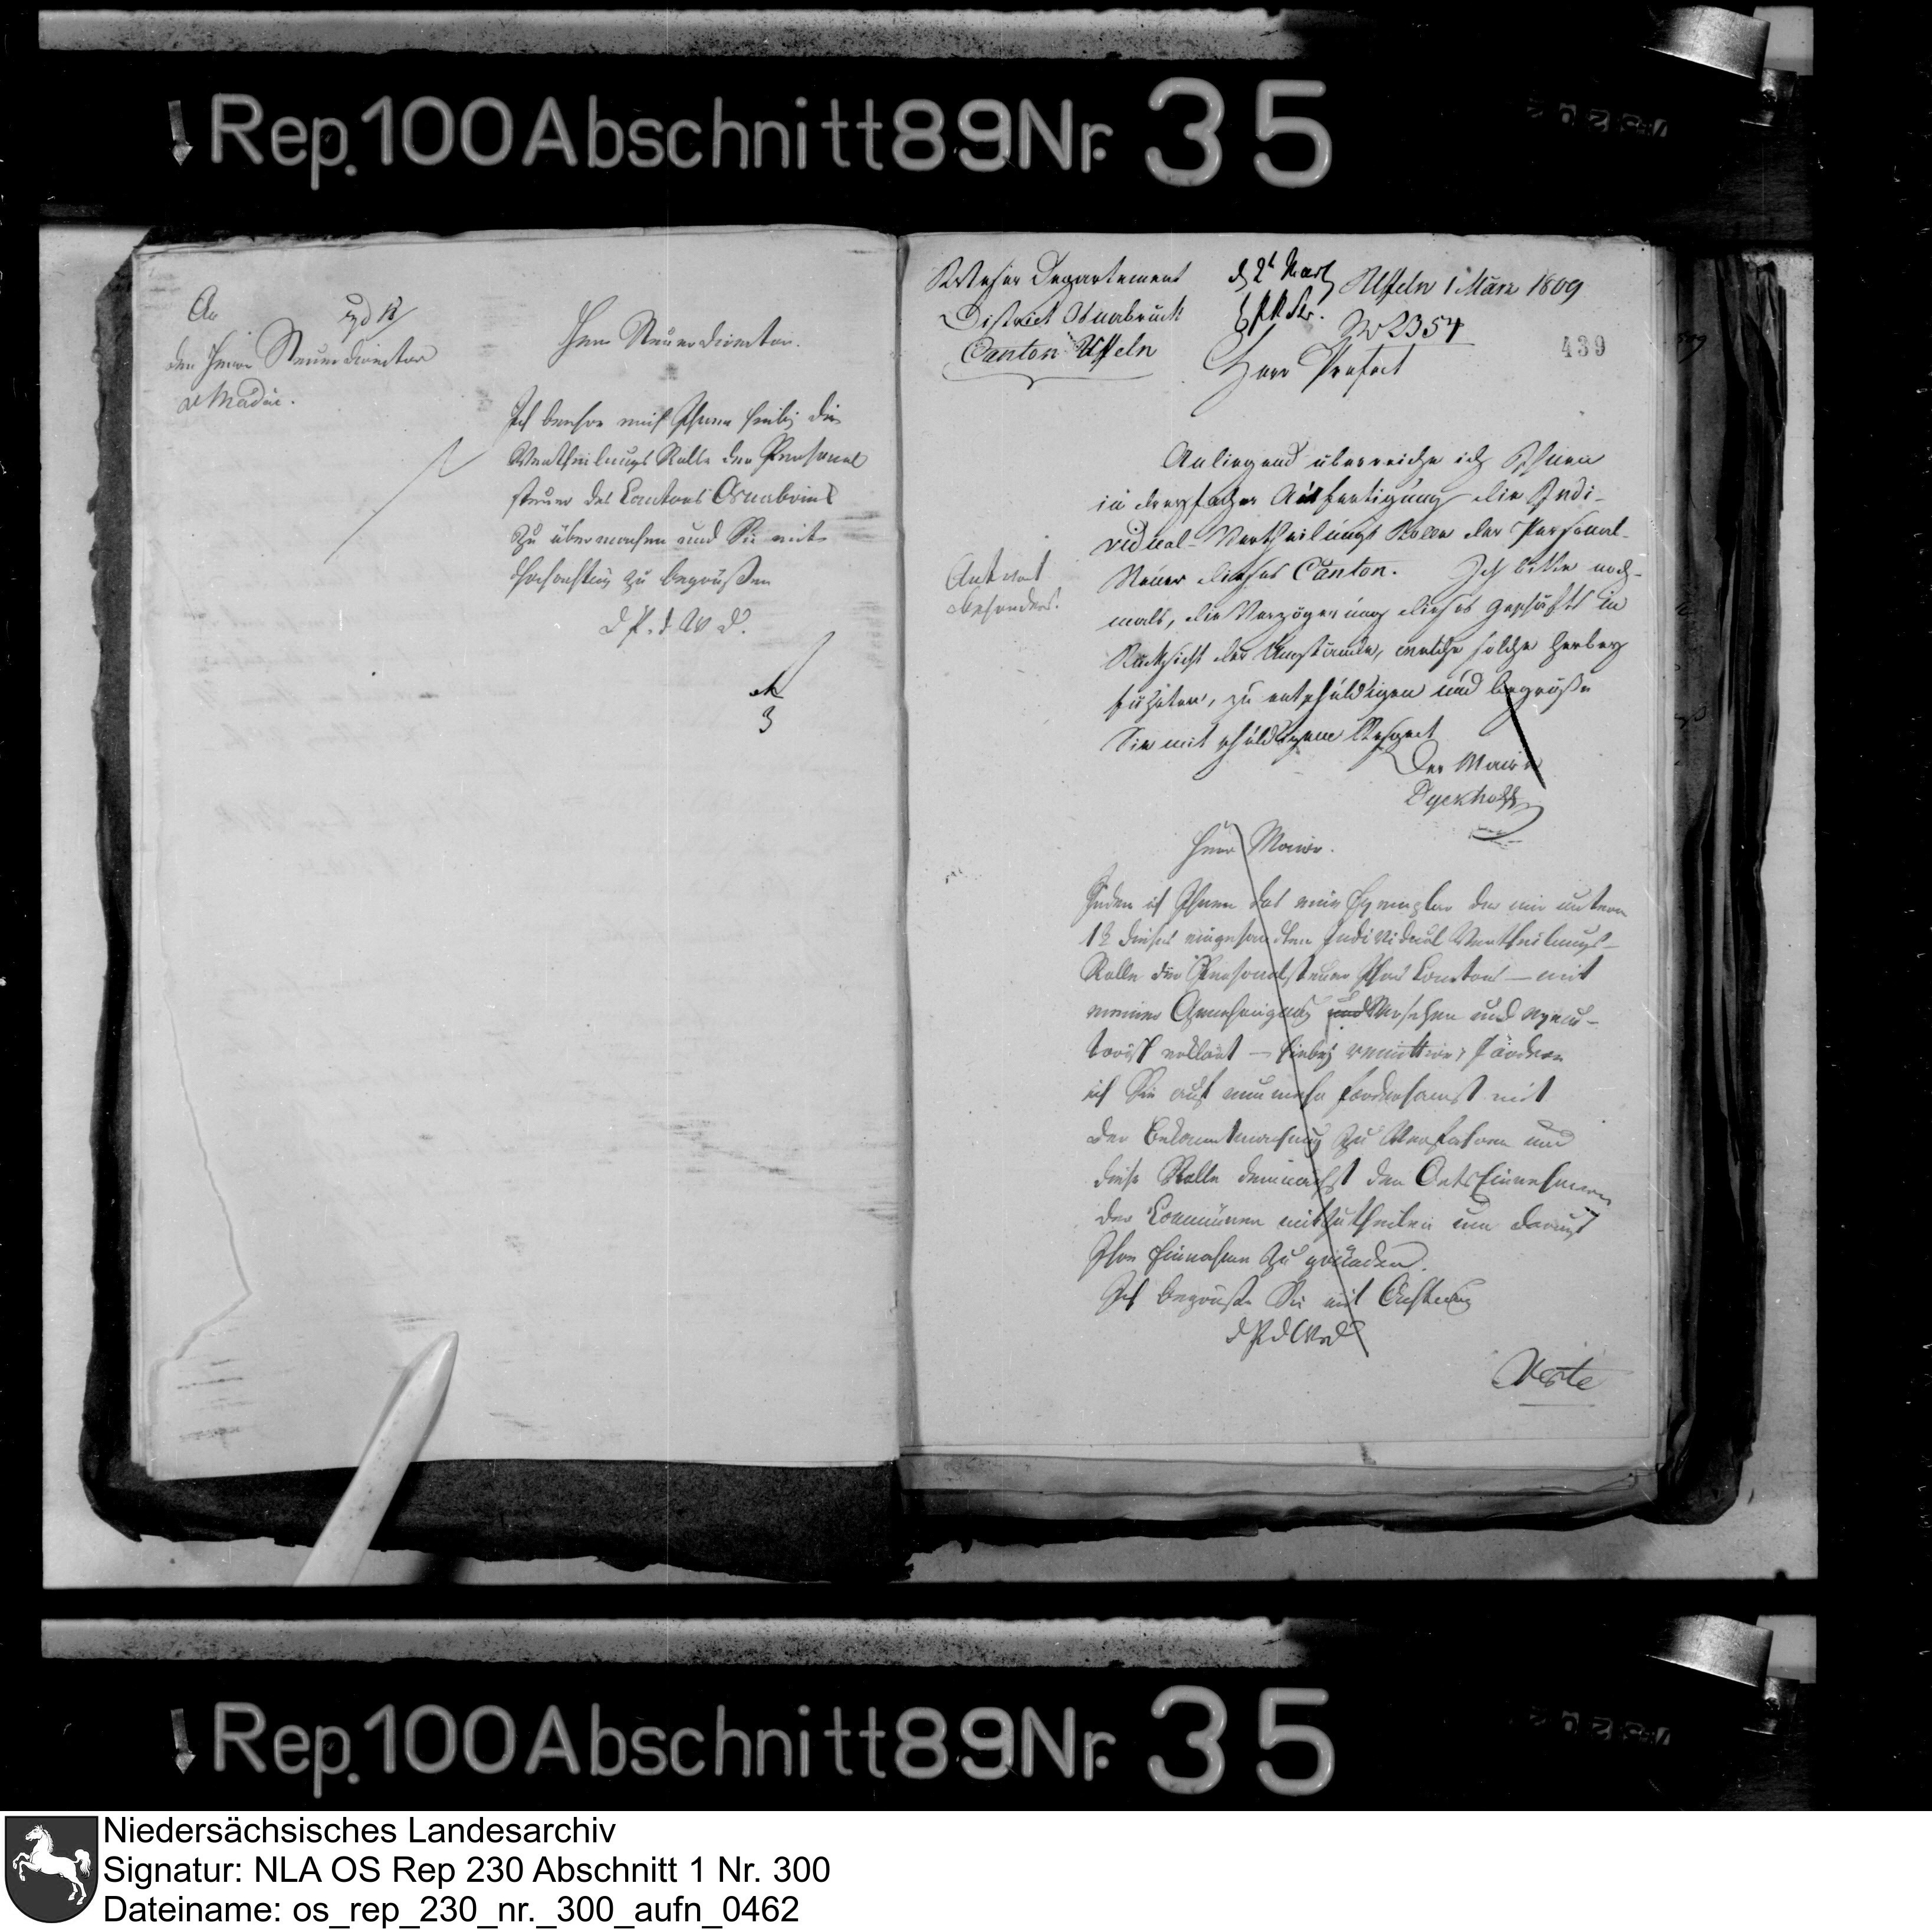 Rep. 100 Abschnitt 89 Nr. 35
An
den Herrn Steuerdirector
Herr Steuerdirector.
Ich beehre mich Ihnen hiebei die
Vertheilungs Rolle der Personal
steuer des Cantons Osnabrück
zu übermachen und Sie mit
Hochachtung zu begrüßen
d. P. d. W. D.
Weser Departement
District Osnabrück
Canton Uffeln
Uffeln 1 März 1809
No 2354
439
Herr Präfect
Anliegend überreiche ich Ihnen
in dreyfacher Ausfertigung die Indi-
vidual-Vertheilungs Rolle der Personal-
Steuer dieses Canton. Ich bitte noch-
mals, die Verzögerung dieses Geschäfts in
Rücksicht der Umstände, welche solche herbey
führten, zu entschuldigen und begrüße
Sie mit schuldigem Respect
Der Maire
Dyckhoff
Antwort
besonders.
Herr Maire.
Indem ich Ihnen das eine Exemplar der mir unterm
dieses eingesandten Individual Vertheilungs-
Rolle der Personalsteuer Ihres Cantons — mit
meiner Genehmigung und versehen und execu-
torisch erklärt — hiebei remittire, fordere
ich Sie auf nunmehr fordersamst mit
der Bekanntmachung zu verfahren und
diese Rolle demnächst den Orts Einnehmern
der Communen mitzutheilen um darauf
Ihre Einnahme zu gründen.
Ich begrüße Sie mit Achtung
d P d W D
Verte
Rep. 100 Abschnitt 89 Nr. 35
Niedersächsisches Landesarchiv
Signatur: NLA OS Rep 230 Abschnitt 1 Nr. 300
Dateiname: os_rep_230_nr._300_aufn_0462